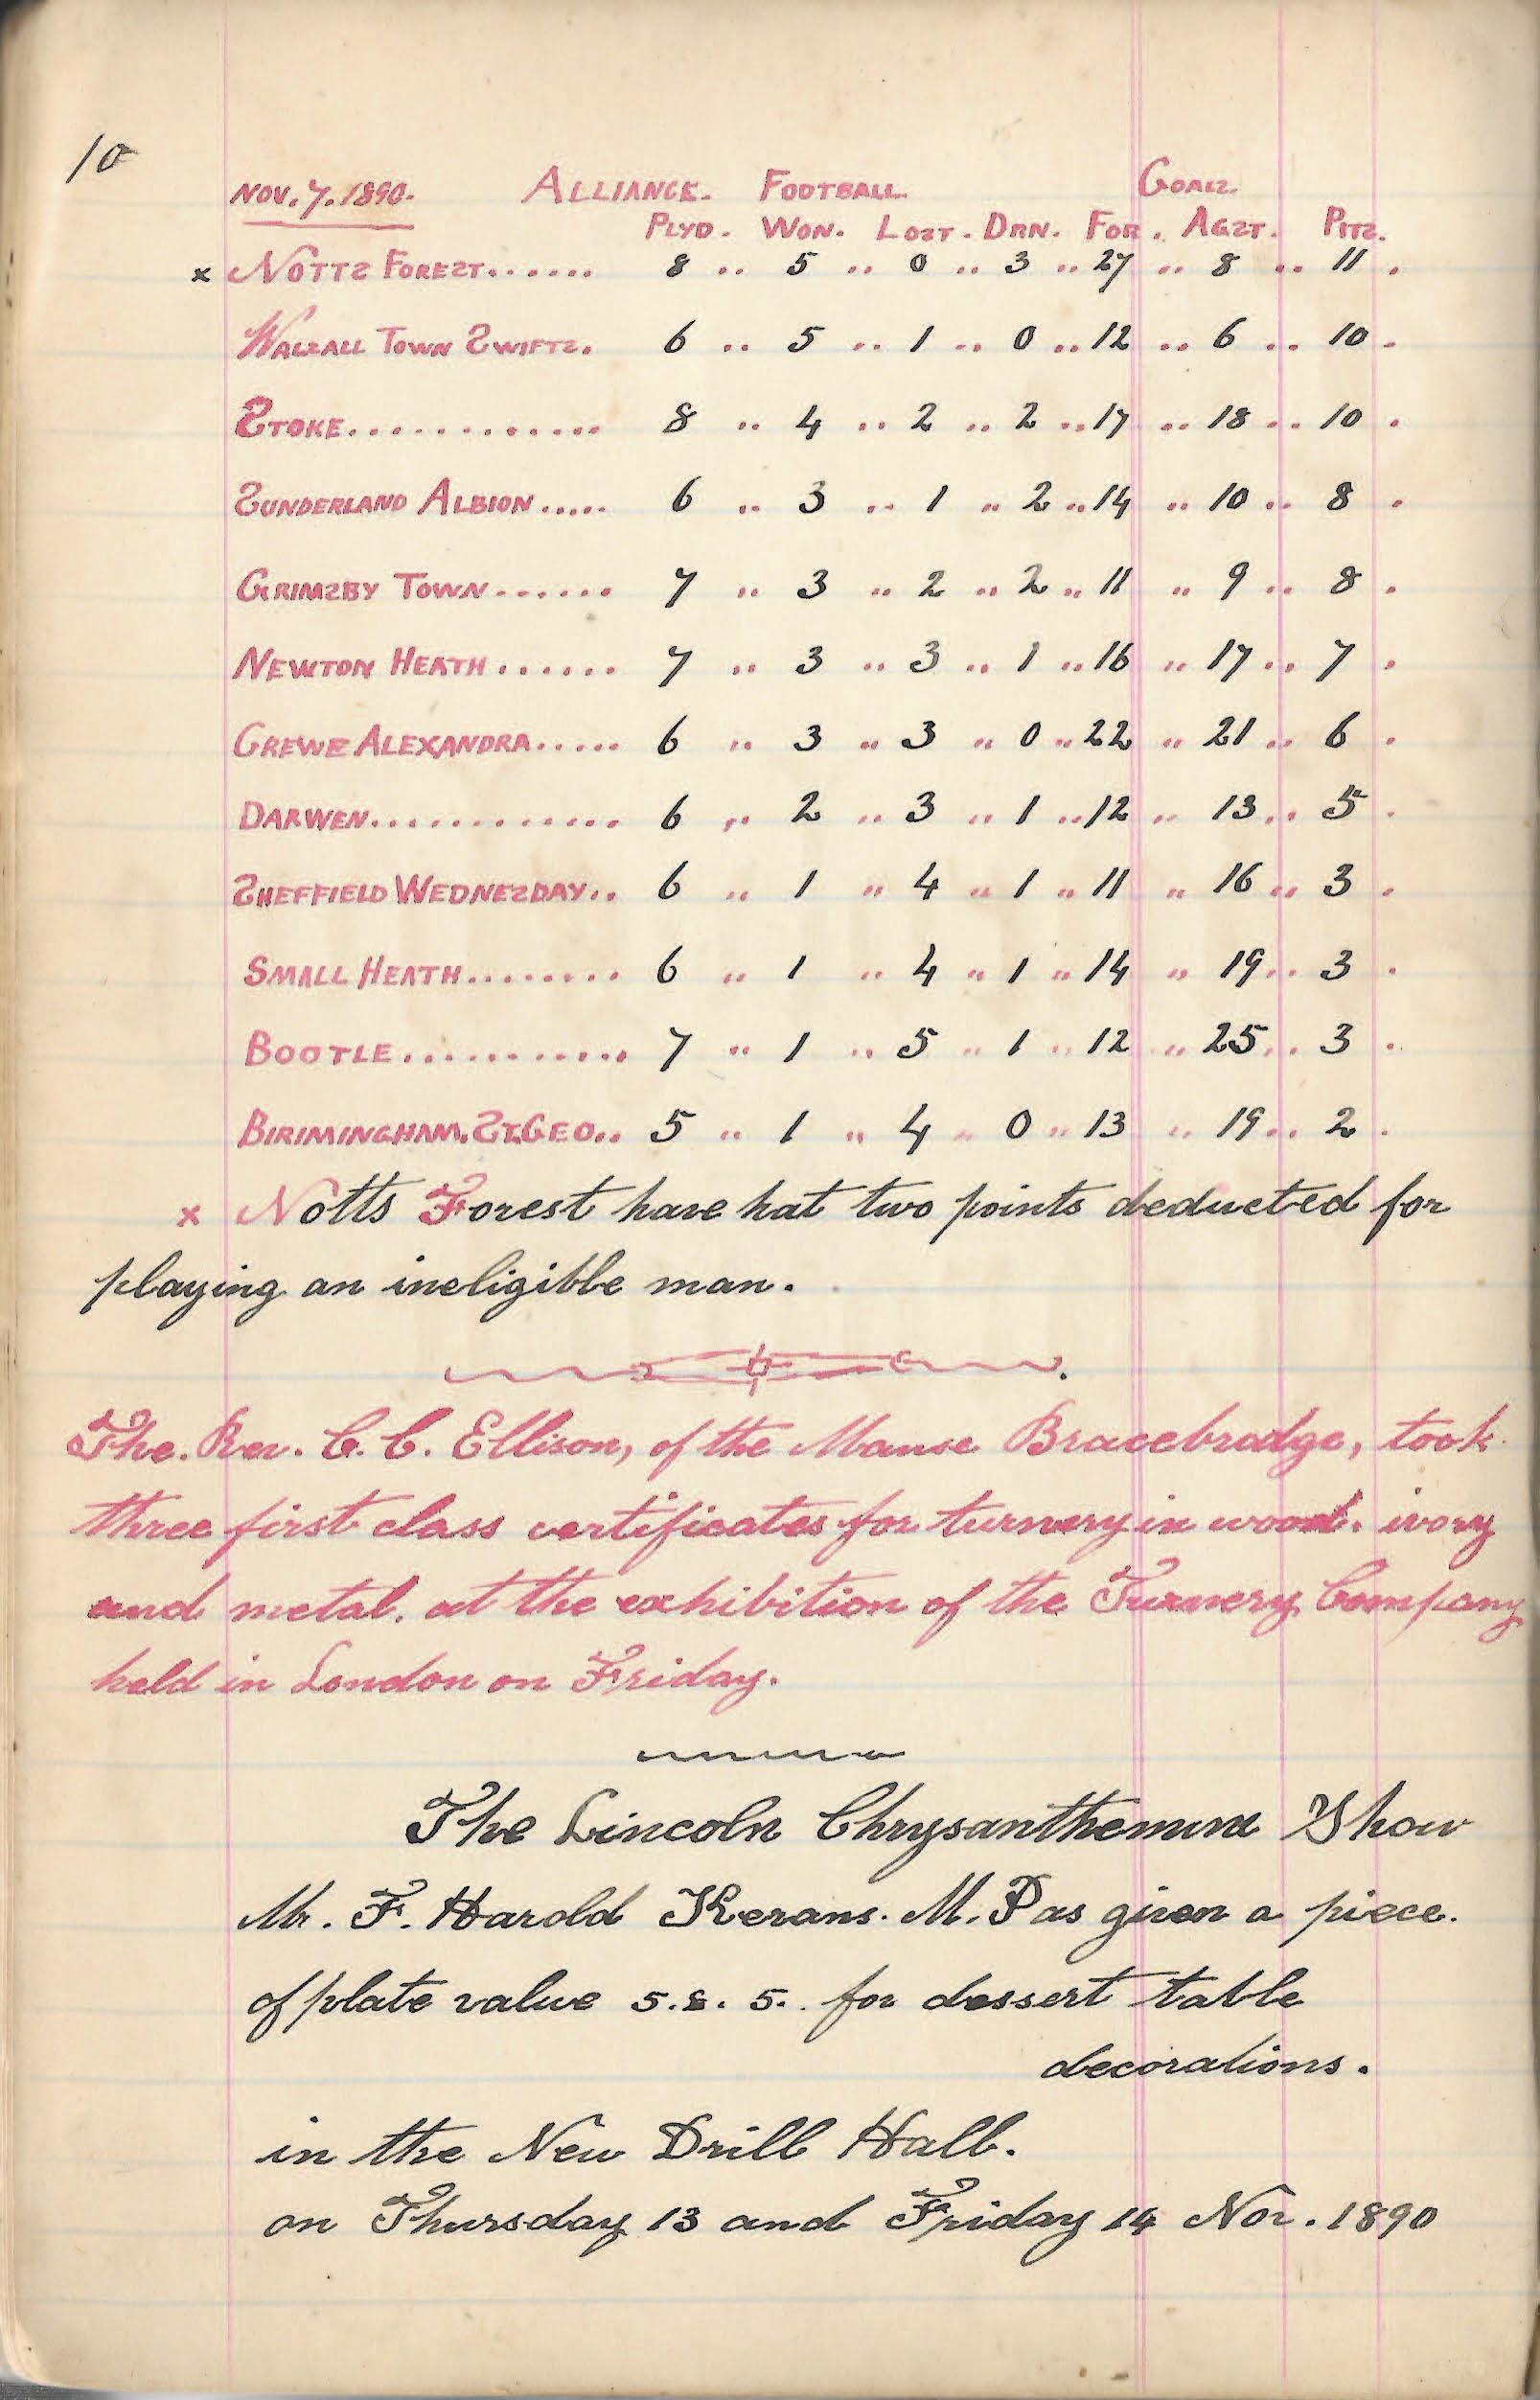 10
NOV. 7. 1890. ALLIANCE. FOOTBALL. GOALS
PLYD. WON. LOST. DRN. FOR. AGST. PTS.
x NOTTS FOREST...... 8 .. 5 .. 0 .. 3 .. 27 .. 8 .. 11 .
WALSALL TOWN SWIFTS. 6 .. 5 .. 1 .. 0 .. 12 .. 6 .. 10 .
STOKE............. 8 .. 4 .. 2 .. 2 .. 17 .. 18 .. 10 .
SUNDERLAND ALBION..... 6 .. 3 .. 1 .. 2 .. 14 .. 10 .. 8 .
GRIMSBY TOWN...... 7 .. 3 .. 2 .. 2 .. 11 .. 9 .. 8 .
NEWTON HEATH...... 7 .. 3 .. 3 .. 1 .. 16 .. 17 .. 7 .
CREWE ALEXANDRA..... 6 .. 3 .. 3 .. 0 .. 22 .. 21 .. 6 .
DARWEN............ 6 .. 2 .. 3 .. 1 .. 12 .. 13 .. 5 .
SHEFFIELD WEDNESDAY.. 6 .. 1 .. 4 .. 1 .. 11 .. 16 .. 3 .
SMALL HEATH........ 6 .. 1 .. 4 .. 1 .. 14 .. 19 .. 3 .
BOOTLE........... 7 .. 1 .. 5 .. 1 .. 12 .. 25 .. 3 .
BIRIMINGHAM. ST. GEO.. 5 .. 1 .. 4 .. 0 .. 13 .. 19 .. 2 .
x Notts Forest have hat two points deducted for
playing an ineligible man.
The. Rev. C. C. Ellison, of the Manse Bracebradge, took
three first class certificates for turnery in wood. ivory
and metal. at the exhibition of the Turnery Company
held in London on Friday.
The Lincoln Chrysanthemum Show
Mr. F. Harold Kerans. M.P as given a piece.
of plate value 5.£. 5.. for dessert table
decorations.
in the New Drill Hall.
on Thursday 13 and Friday 14 Nov. 1890